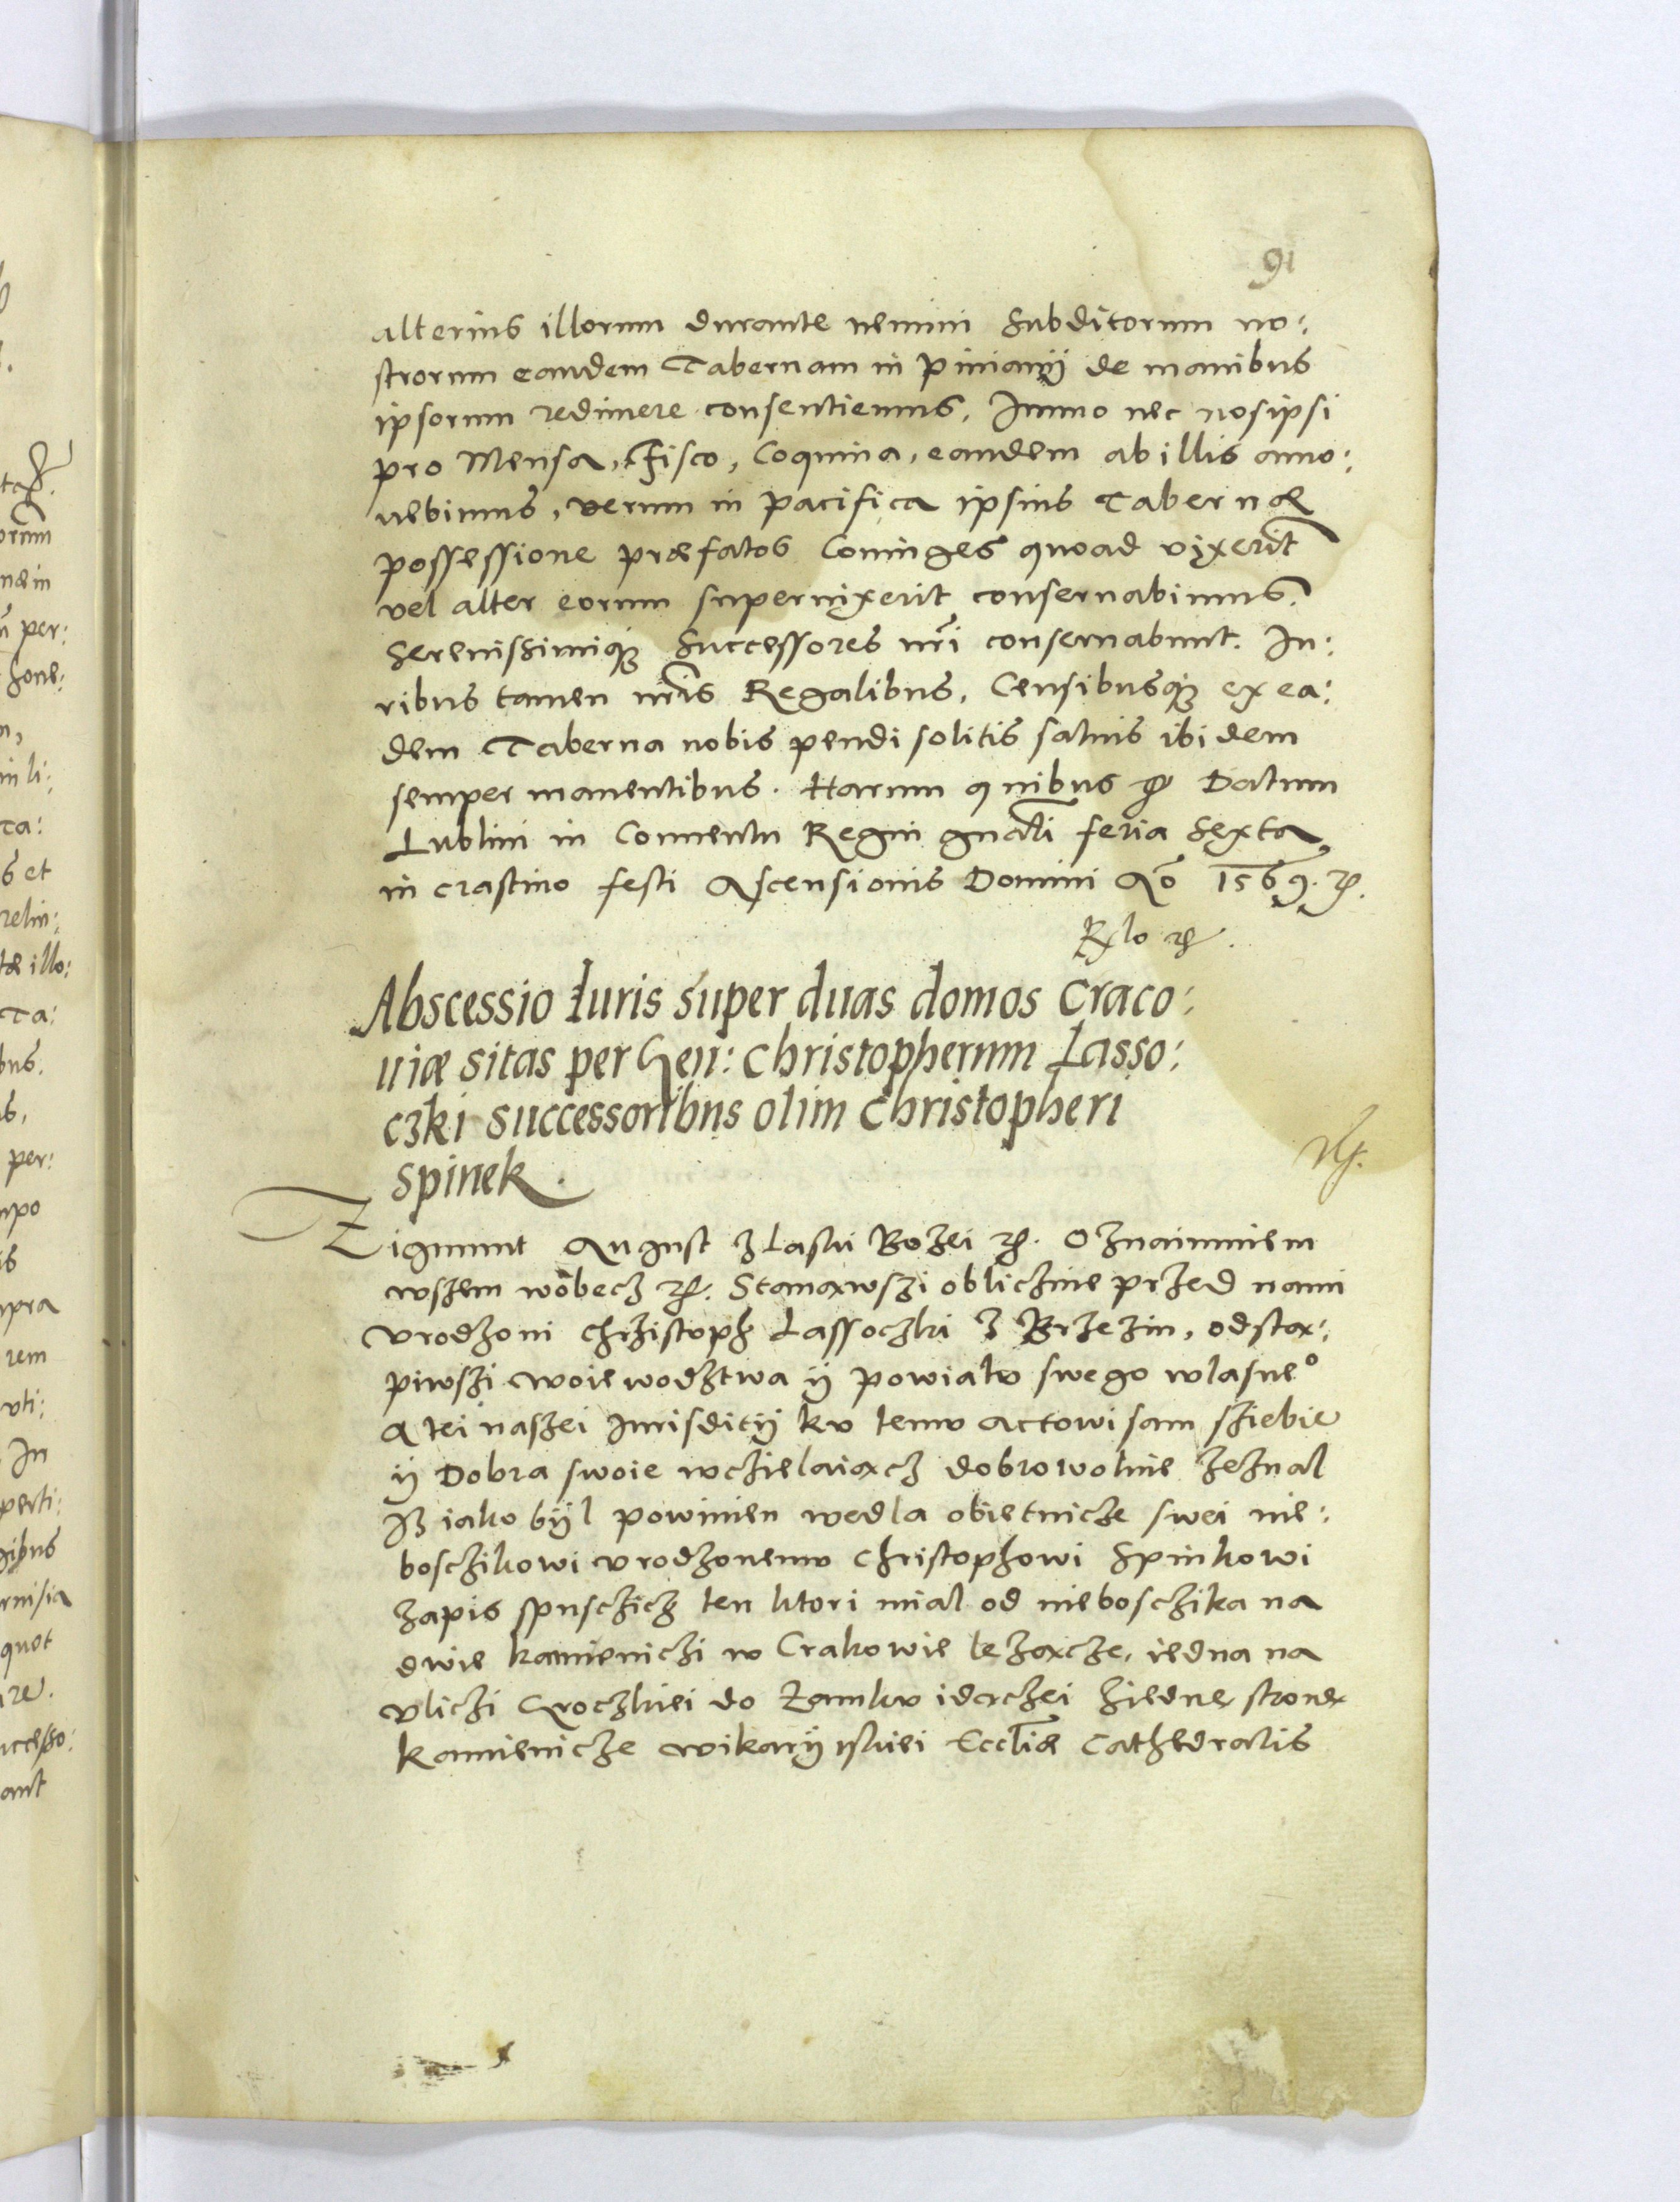 91
alterius illorum durante nemini Subditorum no:
strorum eandem Tabernam in Piniamÿ de manibus
ipsorum redimere consentiemus, Immo nec nosipsi
pro Mensa, Fisco, Coquina, eandem ab illis amo:
uebimus, verum in pacifica ipsius Tabernæ
possessione præfatos Coniuges quoad vixerīt
vel alter eorum superuixerit conseruabimus,
Serenissimiqꝫ Successores nrī conseruabunt. Iu:
ribus tamen nrīs Regalibus, Censibusqꝫ ex ea:
dem Taberna nobis pendi solitis saluis ibidem
semper manentibus. Harum quibus ꝛc Datum
Lublini in Conuentu Regni gnālī feria Sexta
in crastino festi Ascensionis Domini Aō 1569. ꝛc.
Rlo ꝛc.
Abscessio Iuris super duas domos Craco:
uiæ sitas per Gen: Christopherum Lasso:
czki successoribus olim Christopheri
Spinek.
Zigmunt August z Laski Bozei ꝛc. Oznaimuiem
wszem wobecz ꝛc. Stanąwszi obliczine przed nami
Vrodzoni Chrzistoph Lassoczki z Brzezin, odstą:
piwszi woiewodztwa ÿ powiatu swego wlasne°
A tei naszei Iurisditÿ ku temu actowi sam sziebie
ÿ Dobra swoie wczielaiącz dobrowolnie zeznal
Iz iako bÿl powinien wedla obietnicze swei nie:
boschikowi vrodzonemu Christophowi Spinkowi
zapis spusczicz ten ktori mial od nieboschika na
dwie kamieniczi w Crakowie lezącze, iedna na
Vliczi Groczkiei do Zamku idączei ziednę stronę
Kamienicze wikarÿiskiei Ecctīæ Cathedralis